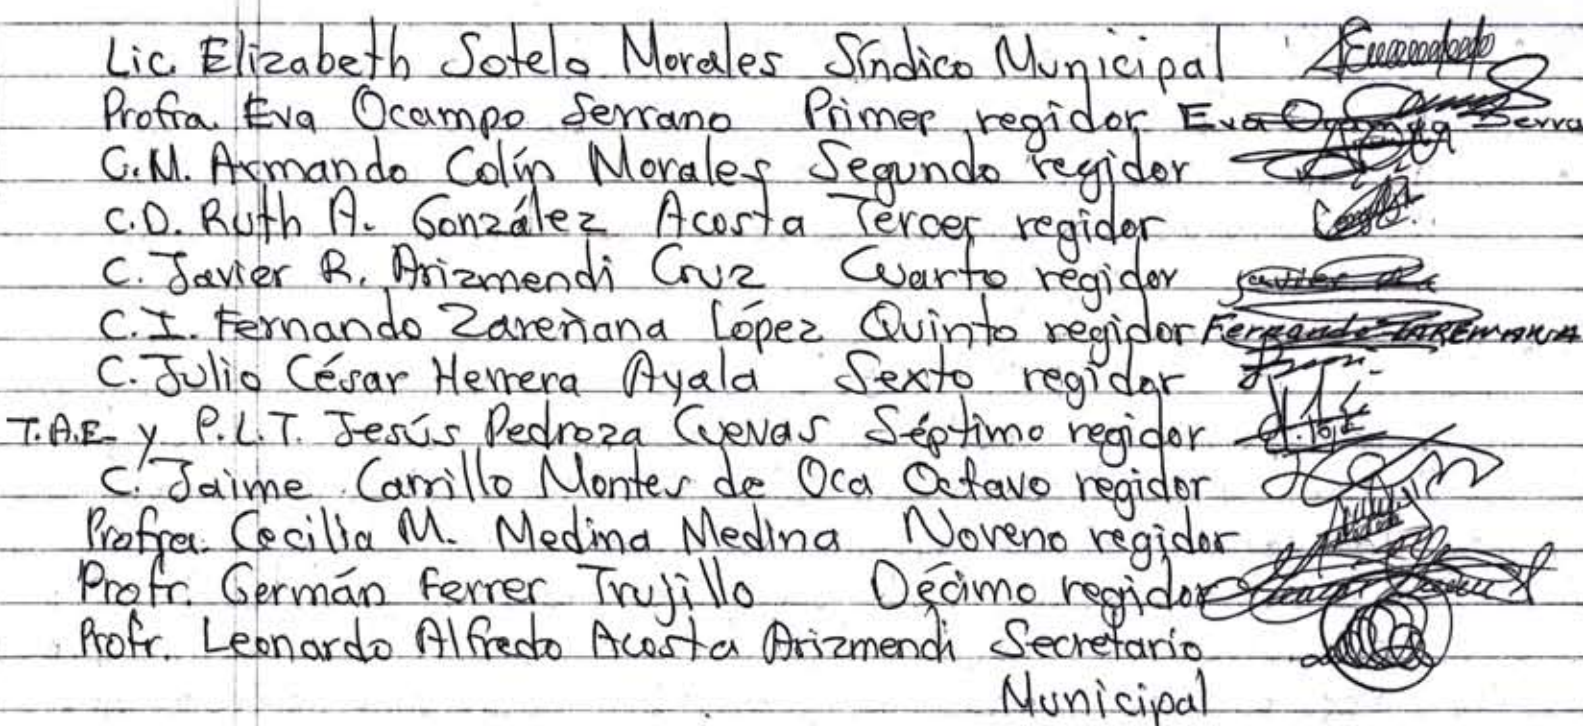 Lic. Elizabeth Sotelo Morales Síndico Municipal
Profra. Eva Ocampo Serrano Primer regidor Eva Ocampo Serra
C.M. Armando Colín Morales Segundo regidor
C.D. Ruth A. González Acosta Tercer regidor
C. Javier R. Arizmendi Cruz Cuarto regidor Javier
C.I. Fernando Zareñana López Quinto regidor Fernando ZAREÑANA
C. Julio César Herrera Ayala Sexto regidor
T.A.E. y P.L.T. Jesús Pedroza Cuevas Séptimo regidor
C. Jaime Carrillo Montes de Oca Octavo regidor
Profra. Cecilia M. Medina Medina Noveno regidor
Profr. Germán Ferrer Trujillo Décimo regidor
Profr. Leonardo Alfredo Acosta Arizmendi Secretario
Municipal